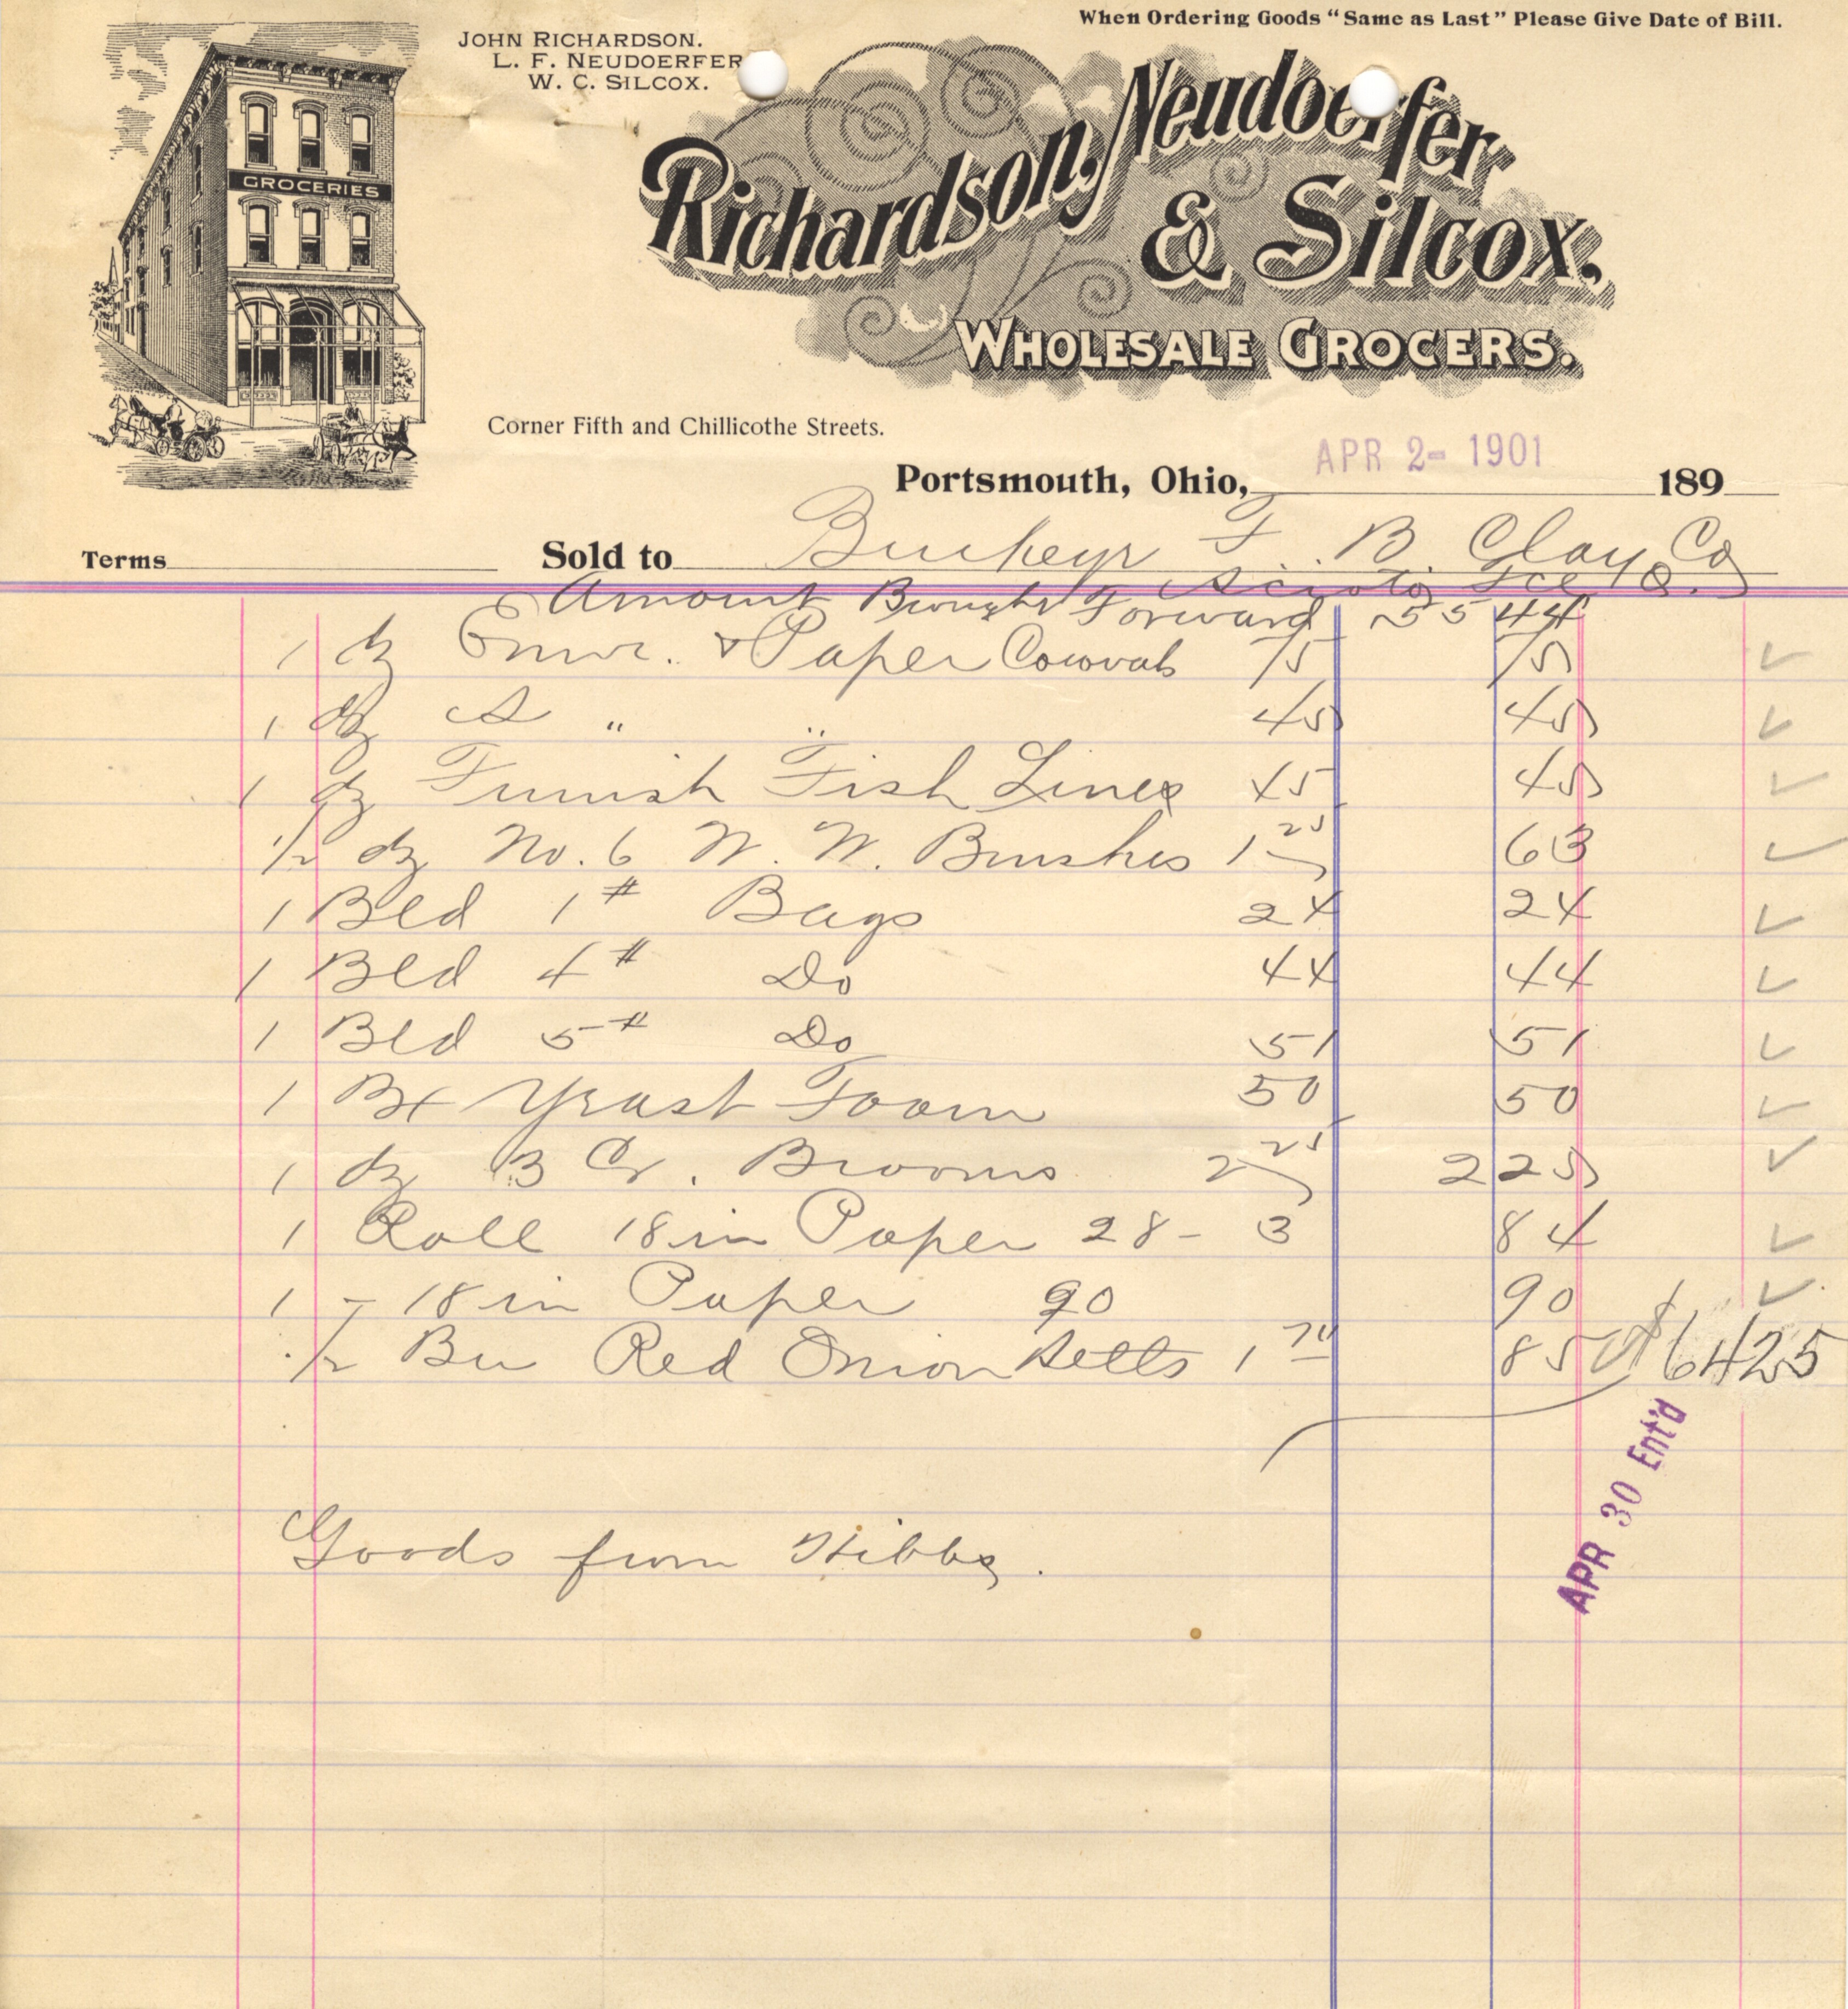 When Ordering Goods "Same as Last" Please Give Date of Bill.
JOHN RICHARDSON.
L. F. NEUDOERFER
W. C. SILCOX.
GROCERIES
Richardson, Neudoerfer
& Silcox,
WHOLESALE GROCERS.
Corner Fifth and Chillicothe Streets.
APR 2- 1901
Portsmouth, Ohio, 189
Terms Sold to Buckeye F. B. Clay Co
Scioto O.
Amount Brought Forward 55 44
1 dz Paper 75 75
1 dz " " 45 45
1 dz Fish Lines 45 45
1/2 dz No. 6 W. W. Brushes 1 25 63
1 Bld 1# Bags 24 24
1 Bld 4# Do 44 44
1 Bld 5# Do 51 51
1 Bx Yeast Foam 50 50
1 dz B Brooms 2 25 2 25
1 Roll 18 in Paper 28 - 3 84
1 - 18 in Paper 90 90
1/2 Bu Red Onion Setts 1 70 85 $6425
APR 30 Ent'd
Goods from Hibbs.